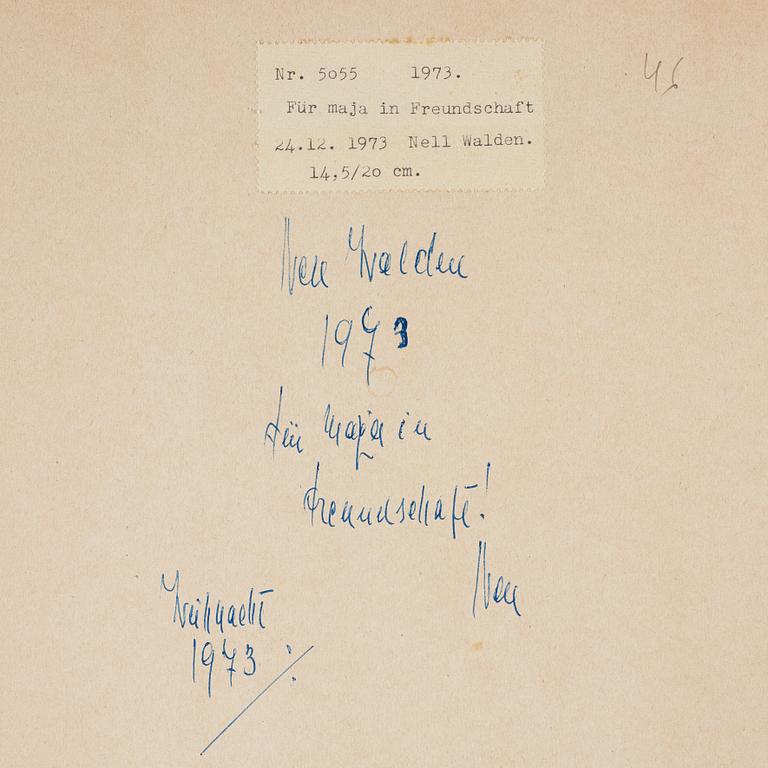 Nr. 5055 1973.
Für maja in Freundschaft
24.12. 1973 Nell Walden.
14,5/20 cm.
Nell Walden
1973
Für Maja in
Freundschaft!
Nell
Weihnacht
1973